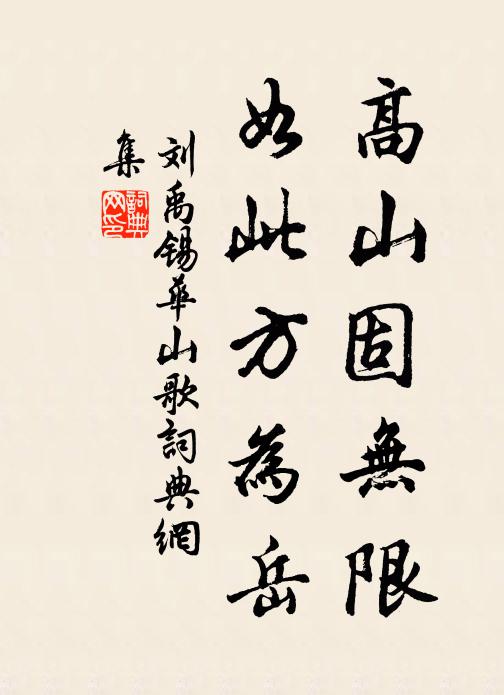 高山固無限
如此方為岳
刘禹锡華山歌詞典網
集
詞典
网印